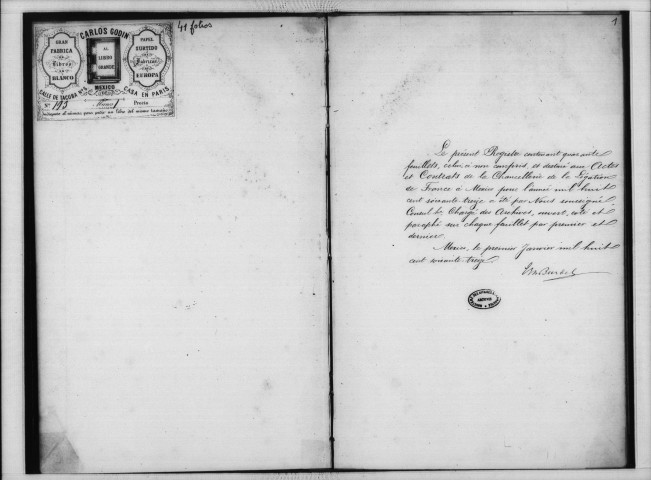 41 folios
CARLOS GODIN
GRAN
FABRICA
Libros
BLANCO
AL
LIBRO
GRANDE
PAPEL
SURTIDO
Fabricas
EUROPA
CALLE DE TACUBA Nº
MEXICO
CASA EN PARIS
Nº 193
Precio
1
Le présent Registre contenant quarante
feuillets, celui-ci non compris, et destiné aux Actes
et Contrats de la Chancellerie de la Légation
de France à Mexico pour l'année mil huit
cent soixante treize a été par Nous soussigné,
Consul Chargé des Archives, ouvert, coté et
paraphé sur chaque feuillet par premier et
dernier.
Mexico, le premier Janvier mil huit
cent soixante treize.